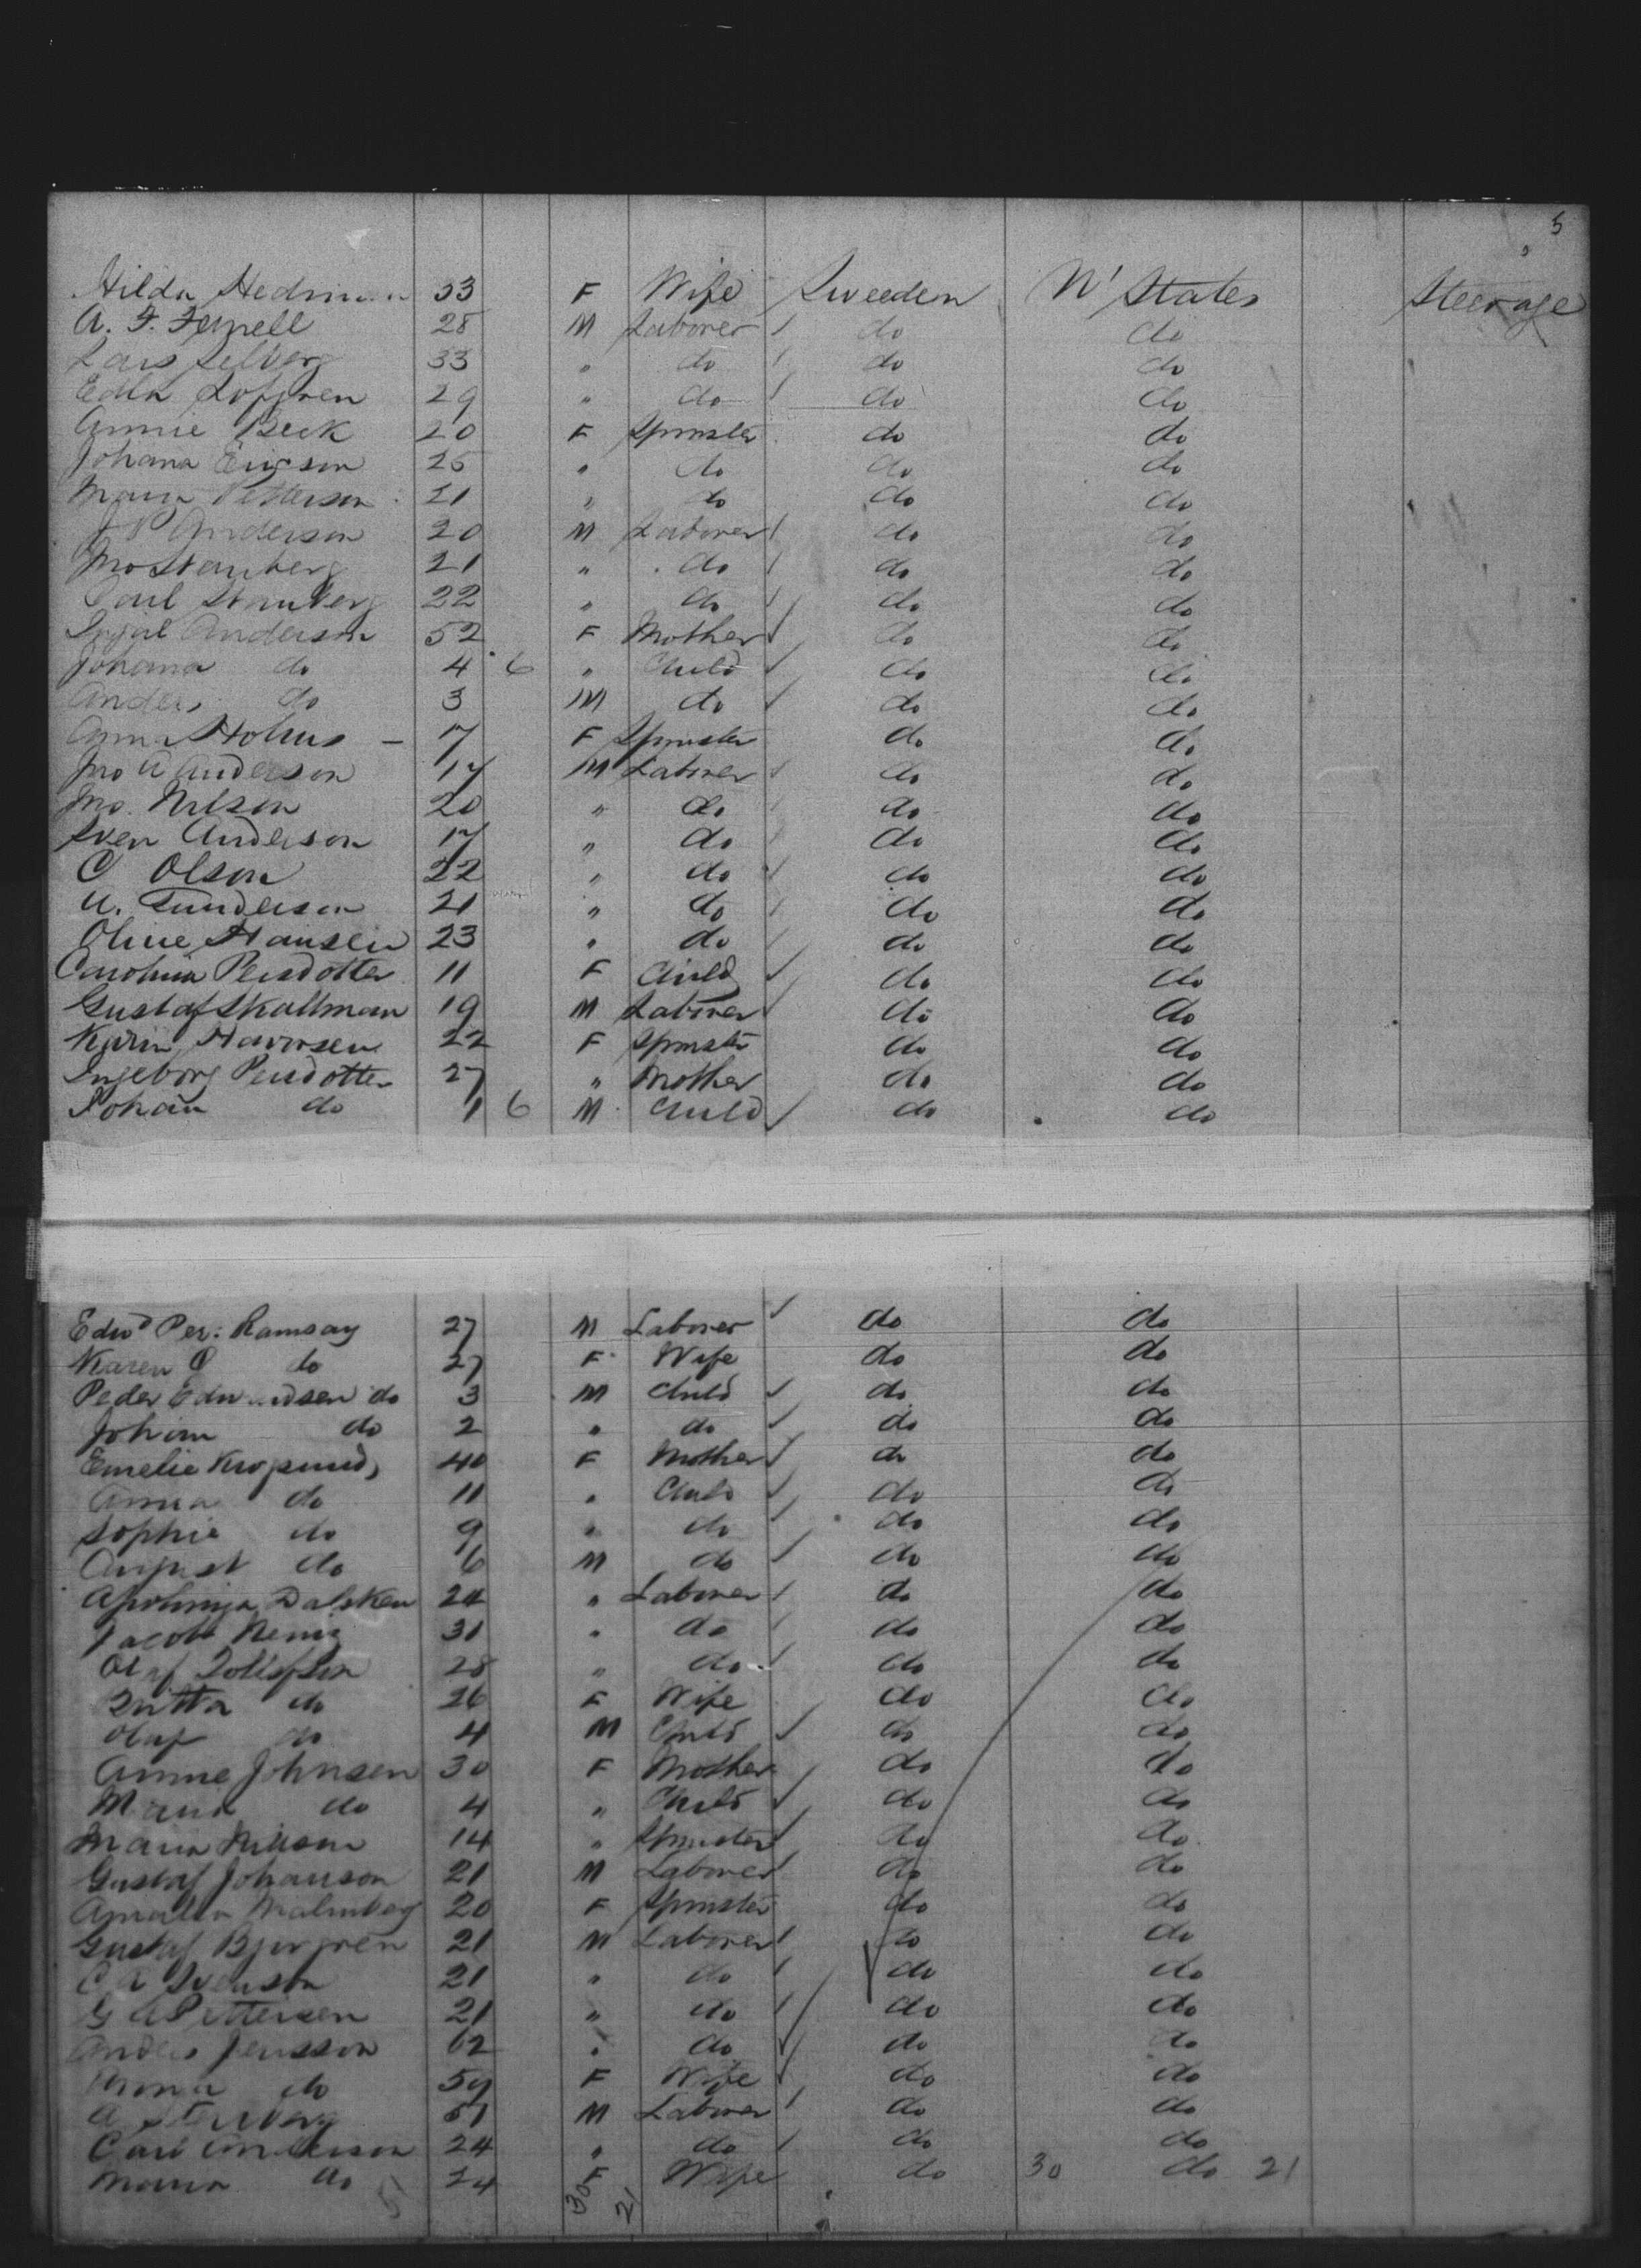 5
Hilda Hedman 33 F Wife Sweeden N' States Steerage
A. F. 28 M Laborer do do
Lars 33 " do do do
Edla Lofgren 29 " do do do
Annie Beck 20 F Spinster do do
Johana Ericson 25 " do do do
Maria Petterson 21 " do do do
J P Anderson 20 M Laborer do do
Jno Stanberg 21 " do do do
Paul Stanberg 22 " do do do
Anderson 52 F Mother do do
Johana do 4 6 " Child do do
Anders do 3 M do do do
Anna Holms - 7 F Spinster do do
Jno A Anderson 17 M Laborer do do
Jno. Nilson 20 " do do do
Sven Anderson 17 " do do do
C Olson 22 " do do do
A. Gunderson 21 " do do do
Oline Hansen 23 " do do do
Carolina Persdotter 11 F Child do do
Gustaf Skallman 19 M Laborer do do
Karin 22 F Spinster do do
Ingeborg Persdotter 27 " Mother do do
Johan do 1 6 M Child do do
Edwd Per: Ramsay 27 M Laborer do do
Karen O do 27 F Wife do do
Peder do 3 M Child do do
Johan do 2 " do do do
Emelie 40 F Mother do do
Anna do 11 " Child do do
Sophie do 9 " do do do
August do 6 M do do do
Dalsken 24 " Laborer do do
Jacob 31 " do do do
Olaf 28 " do do do
do 26 F Wife do do
Olaf do 4 M Child do do
Annie Johnsen 30 F Mother do do
Maria do 4 " Child do do
Maria Nilson 14 " Spinster do do
Gustaf Johanson 21 M Laborer do do
Amalia Malmberg 20 F Spinster do do
Gustaf Bjorgren 21 M Laborer do do
C A Svenson 21 " do do do
G A Pettersen 21 " do do do
Anders Jensson 62 " do do do
do 59 F Wife do do
A 51 M Laborer do do
Carl Anderson 24 " do do do
Maria do 24 F Wife do 30 do 21
30 21